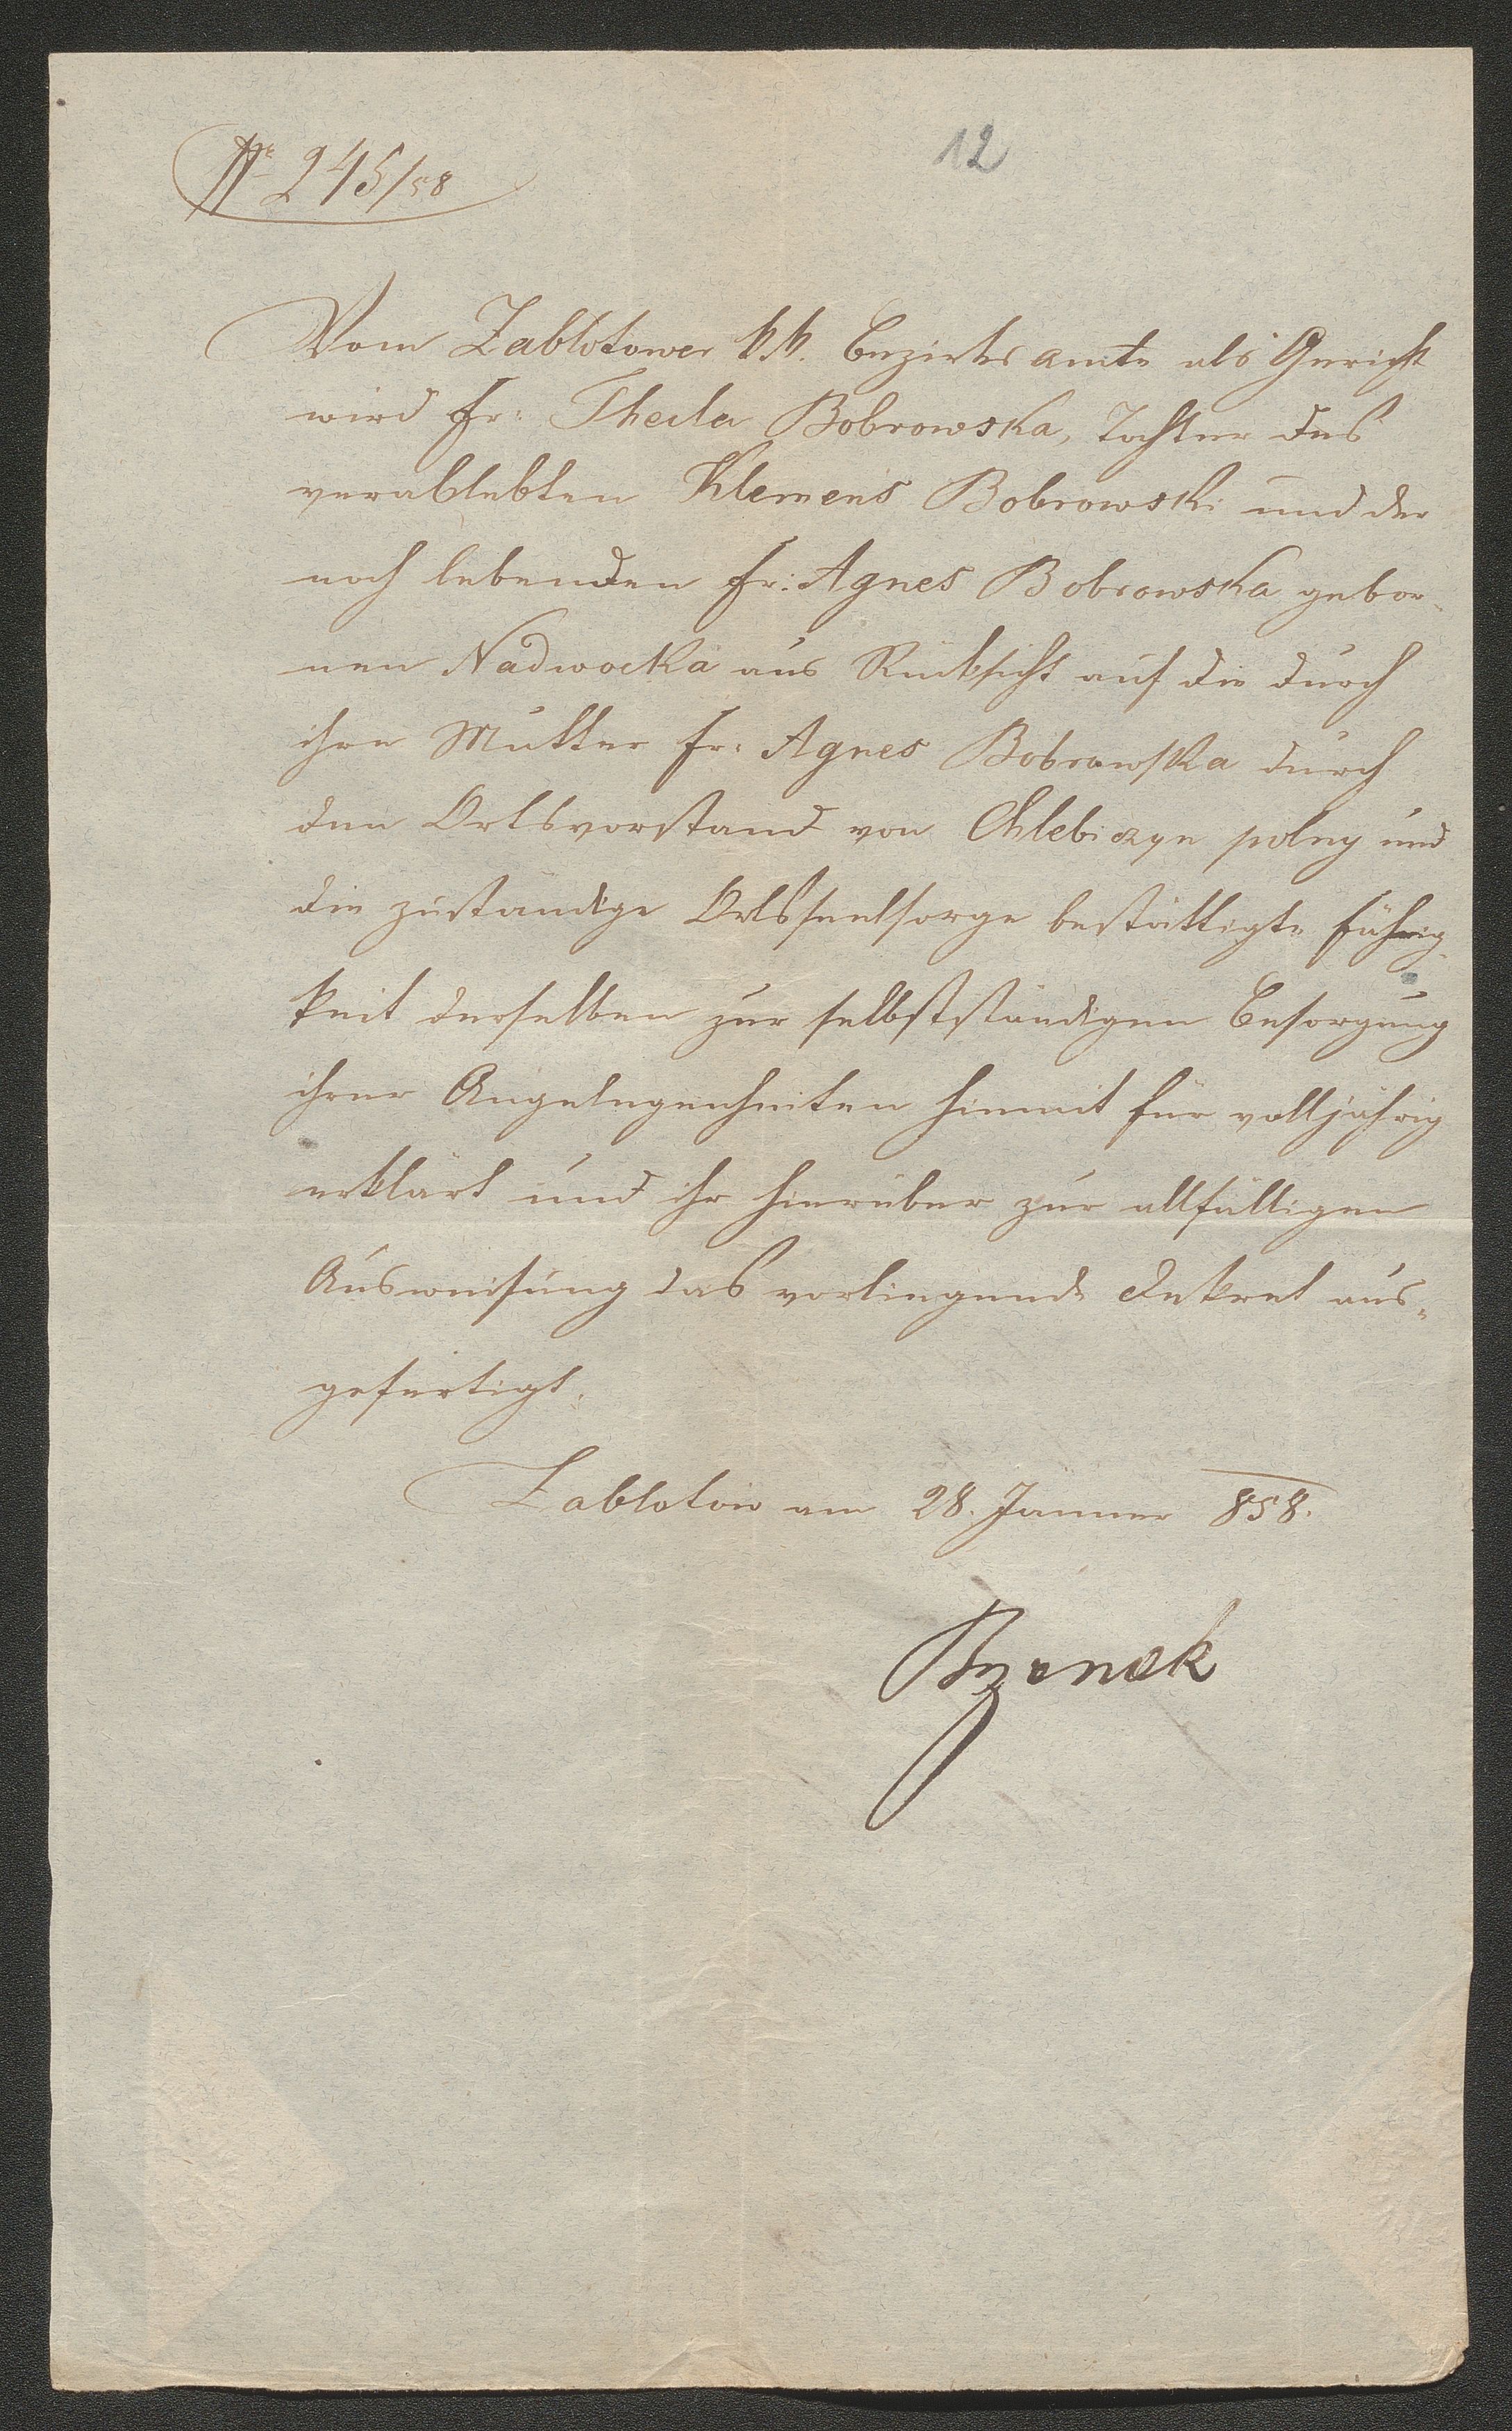 Nr 245/58
12
Vom Zablotower k.k. Bezirksamte als Gericht
wird Fr: Thecla Bobrowska, Tochter des
verablebten Klemens Bobrowski und der
noch lebenden Fr: Agnes Bobrowska gebor-
nen Nadwocka aus Rücksicht auf die durch
ihre Mutter Fr: Agnes Bobrowska durch
den Ortsvorstand von Chlebiczyn polny und
die zuständige Ortsseelsorge bestättigte Fähig-
keit derselben zur selbstständigen Besorgung
ihrer Angelegenheiten hiemit für volljährig
erklärt und ihr hierüber zur allfälligen
Ausweisung das vorliegende Dekret aus-
gefertigt.
Zablotow am 28. Jänner 858.